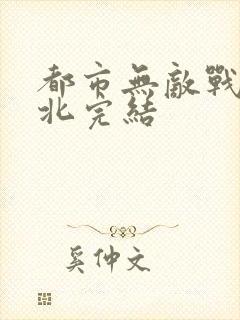 都市無敵戰
北完結
奚仲文